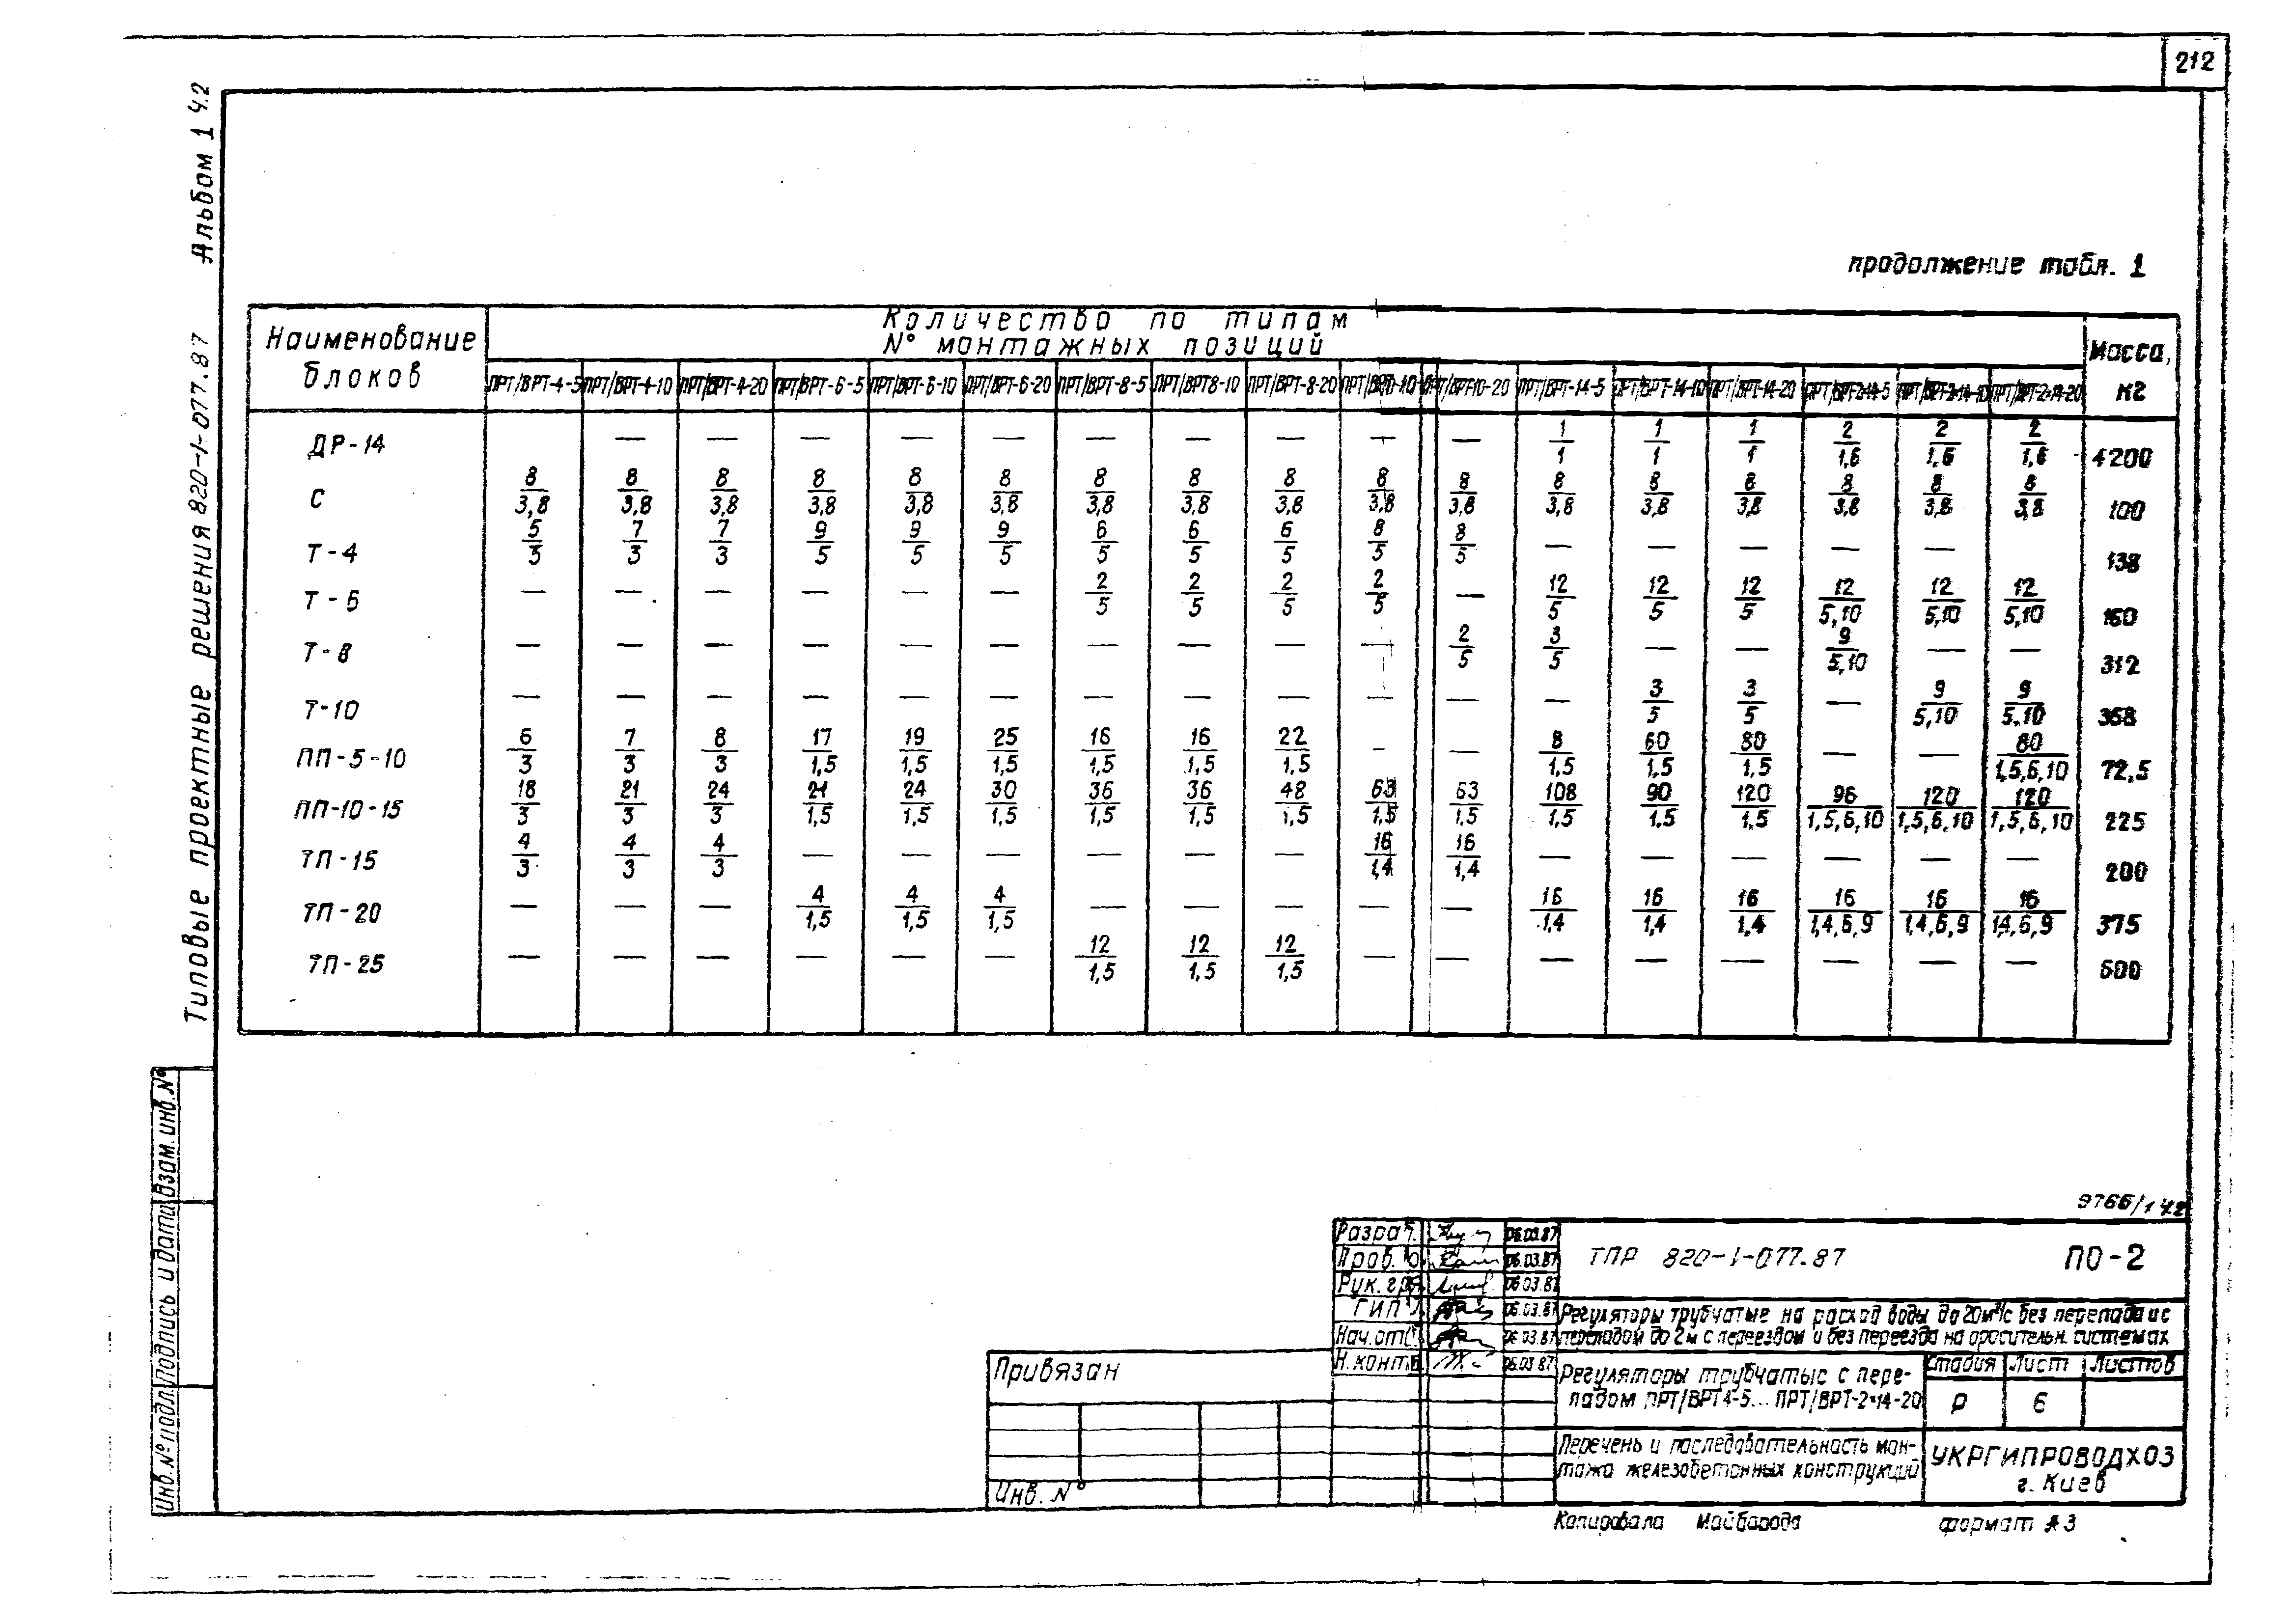 212
Альбом 1 ч.2
Типовые проектные решения 820-1-077.87
продолжение табл. 1
Наименование блоков
Количество по типам
№ монтажных позиций
Масса, кг
ПРТ/ВРТ-4-5 ПРТ/ВРТ-4-10 ПРТ/ВРТ-4-20 ПРТ/ВРТ-6-5 ПРТ/ВРТ-6-10 ПРТ/ВРТ-6-20 ПРТ/ВРТ-8-5 ПРТ/ВРТ8-10 ПРТ/ВРТ-8-20 ПРТ/ВРТ-10-10 ПРТ/ВРТ-10-20 ПРТ/ВРТ-14-5 ПРТ/ВРТ-14-10 ПРТ/ВРТ-14-20 ПРТ/ВРТ-2×14-5 ПРТ/ВРТ-2×14-10 ПРТ/ВРТ-2×14-20
ДР-14 — — — — — — — — — — 1/1 1/1 1/1 2/1,6 2/1,6 2/1,6 4200
С 8/3,8 8/3,8 8/3,8 8/3,8 8/3,8 8/3,8 8/3,8 8/3,8 8/3,8 8/3,8 8/3,8 8/3,8 8/3,8 8/3,8 8/3,8 8/3,8 8/3,8 100
Т-4 5/3 7/3 7/3 9/5 9/5 9/5 6/5 6/5 6/5 8/5 8/5 — — — — — 138
Т-6 — — — — — — 2/5 2/5 2/5 2/5 — 12/5 12/5 12/5 12/5,10 12/5,10 12/5,10 160
Т-8 — — — — — — — — — — 2/5 3/5 — — 9/5,10 — — 312
Т-10 — — — — — — — — — — — — 3/5 3/5 — 9/5,10 9/5,10 368
ПП-5-10 6/3 7/3 8/3 17/1,5 19/1,5 25/1,5 16/1,5 16/1,5 22/1,5 — — 8/1,5 60/1,5 80/1,5 — — 80/1,5,6,10 72,5
ПП-10-15 18/3 21/3 24/3 21/1,5 24/1,5 30/1,5 36/1,5 36/1,5 48/1,5 63/1,5 63/1,5 108/1,5 90/1,5 120/1,5 96/1,5,6,10 120/1,5,6,10 120/1,5,6,10 225
ТП-15 4/3 4/3 4/3 — — — — — — 16/1,4 16/1,4 — — — — — — 200
ТП-20 — — — 4/1,5 4/1,5 4/1,5 — — — — — 16/1,4 16/1,4 16/1,4 16/1,4,6,9 16/1,4,6,9 16/1,4,6,9 375
ТП-25 — — — — — — 12/1,5 12/1,5 12/1,5 — — — — — — — — 600
Инв.№ подл. Подпись и дата Взам.инв.№
9766/1 ч.2
Разраб. 06.03.87
Пров. 06.03.87
Рук. гр. 06.03.87
ГИП 06.03.87
Нач.отд. 06.03.87
Н.контр. 06.03.87
ТПР 820-1-077.87 ПО-2
Регуляторы трубчатые на расход воды до 20м³/с без перепада и с
перепадом до 2м с переездом и без переезда на оросительн. системах
Регуляторы трубчатые с пере-
падом ПРТ/ВРТ4-5... ПРТ/ВРТ-2×14-20
Стадия Лист Листов
Р 6
Перечень и последовательность мон-
тажа железобетонных конструкций
УКРГИПРОВОДХОЗ
г. Киев
Привязан
Инв. №
Копировала Майборода формат А3